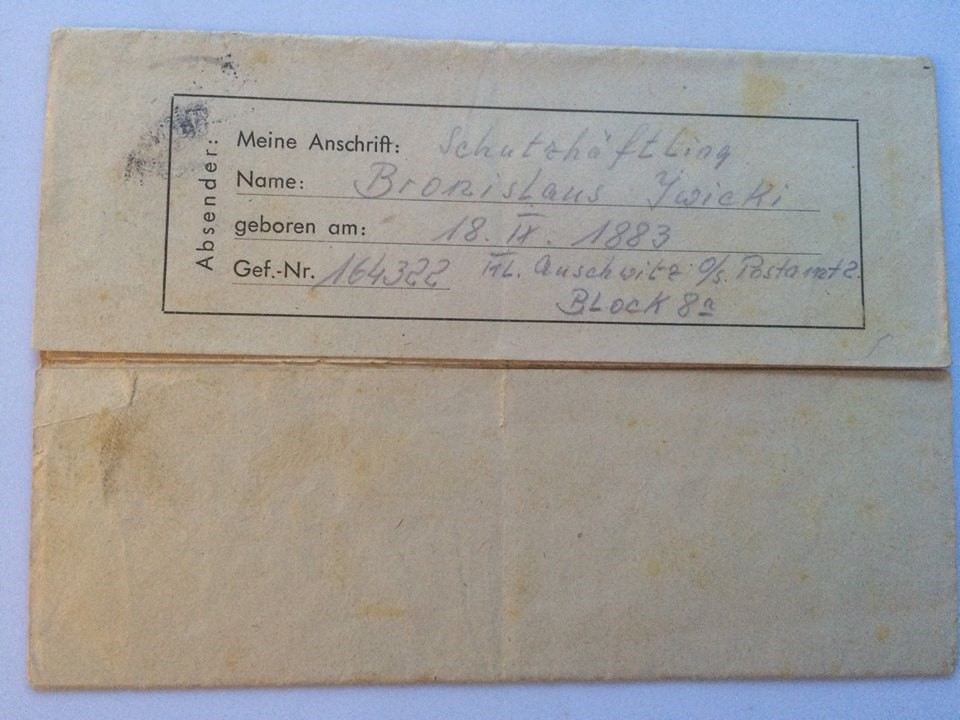 Absender:
Meine Anschrift: Schutzhäftling
Name: Bronislaus Iwicki
geboren am: 18. IX. 1883
Gef.-Nr. 164322 KL. Auschwitz O/S. Postamt 2.
Block 8a